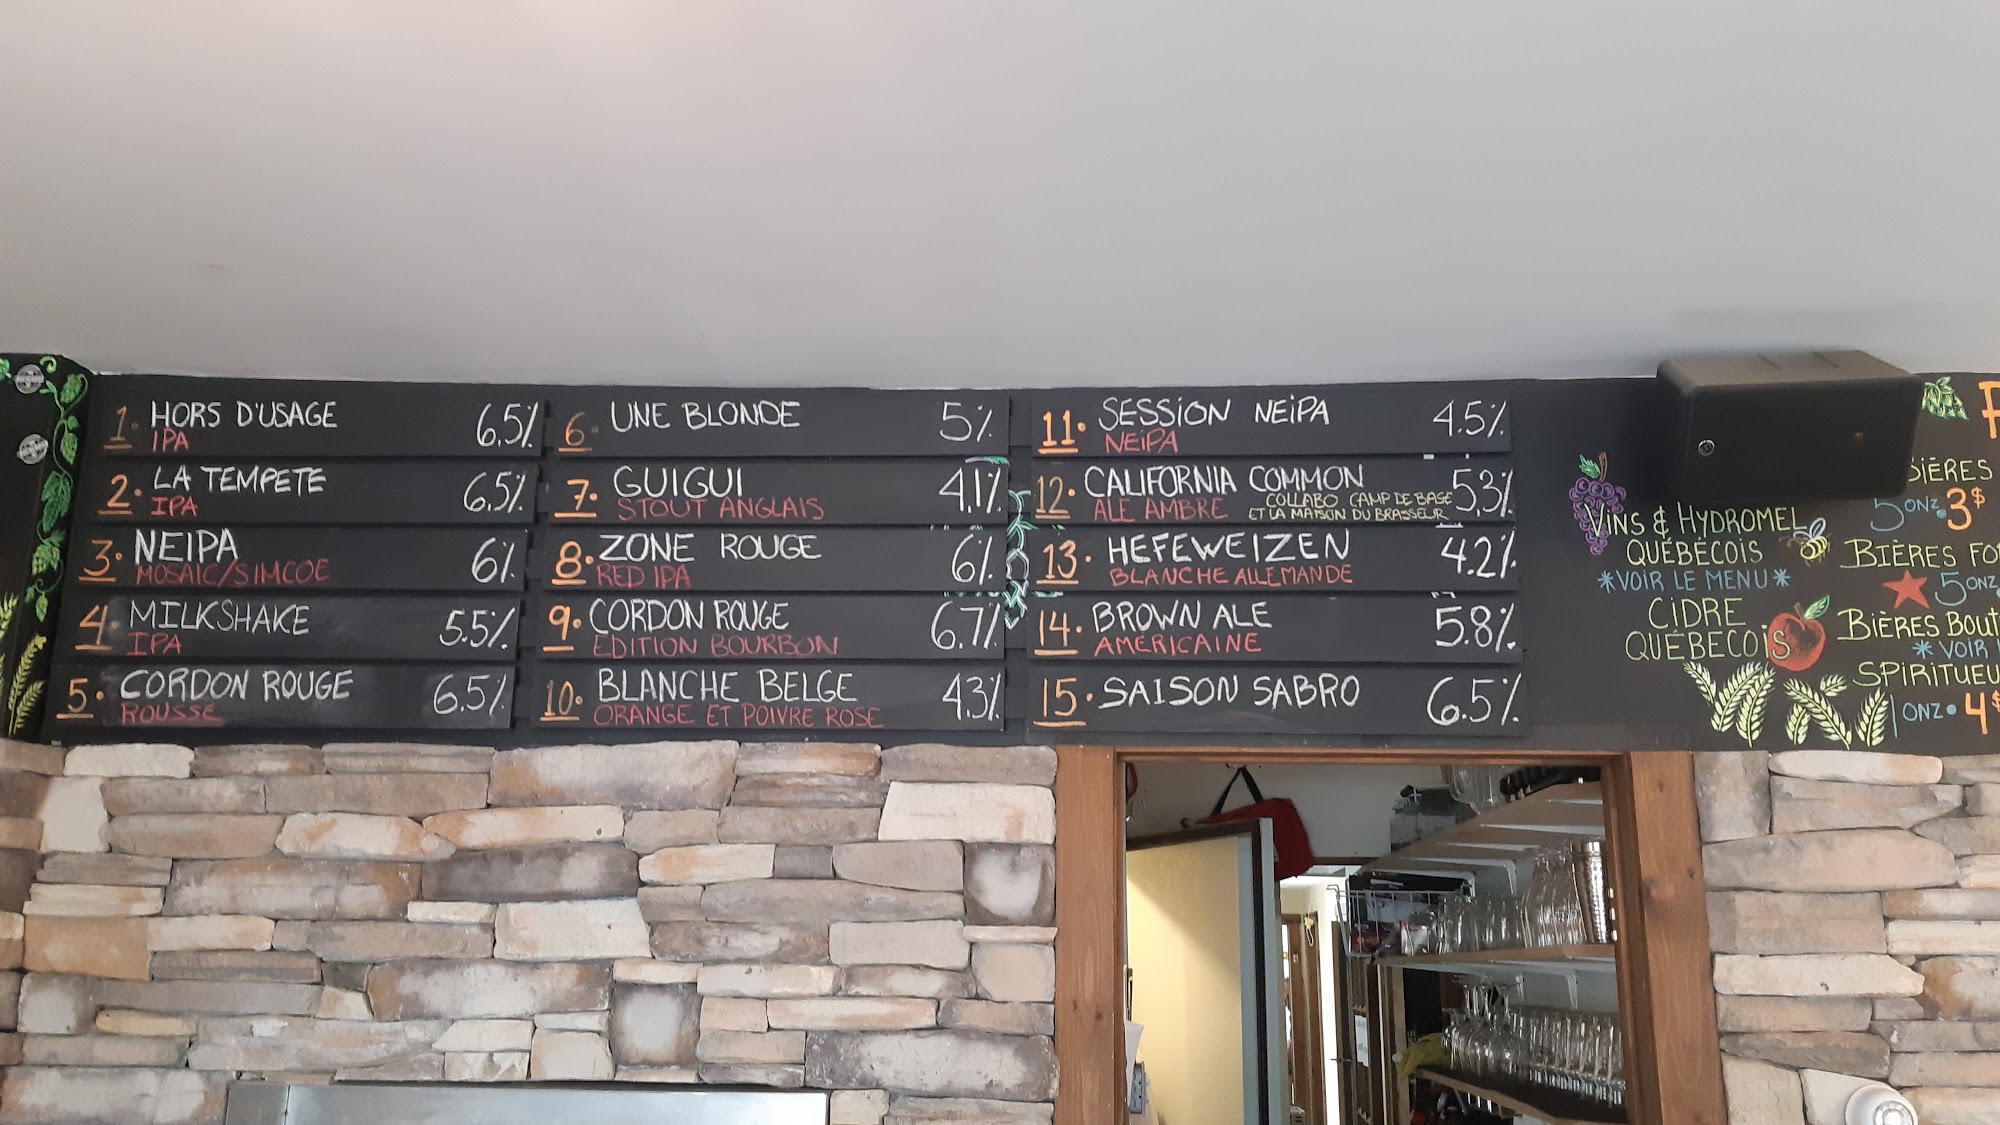 1. HORS D'USAGE 6.5%
IPA
2. LA TEMPETE 6.5%
IPA
3. NEIPA 6%
MOSAIC/SIMCOE
4. MILKSHAKE 5.5%
IPA
5. CORDON ROUGE 6.5%
ROUSSE
6. UNE BLONDE 5%
7. GUIGUI 4,1%
STOUT ANGLAIS
8. ZONE ROUGE 6%
RED IPA
9. CORDON ROUGE 6.7%
EDITION BOURBON
10. BLANCHE BELGE 4.3%
ORANGE ET POIVRE ROSE
11. SESSION NEIPA 4.5%
NEIPA
12. CALIFORNIA COMMON 5,3%
ALE AMBRE COLLABO CAMP DE BASE
ET LA MAISON DU BRASSEUR
13. HEFEWEIZEN 4.2%
BLANCHE ALLEMANDE
14. BROWN ALE 5.8%
AMERICAINE
15. SAISON SABRO 6.5%
VINS & HYDROMEL
QUÉBÉCOIS
*VOIR LE MENU*
CIDRE
QUÉBECOIS
BIÈRES
5 ONZ. 3$
BIÈRES FO
5 ONZ.
BIÈRES BOUT
* VOIR
SPIRITUEU
1 ONZ. 4$